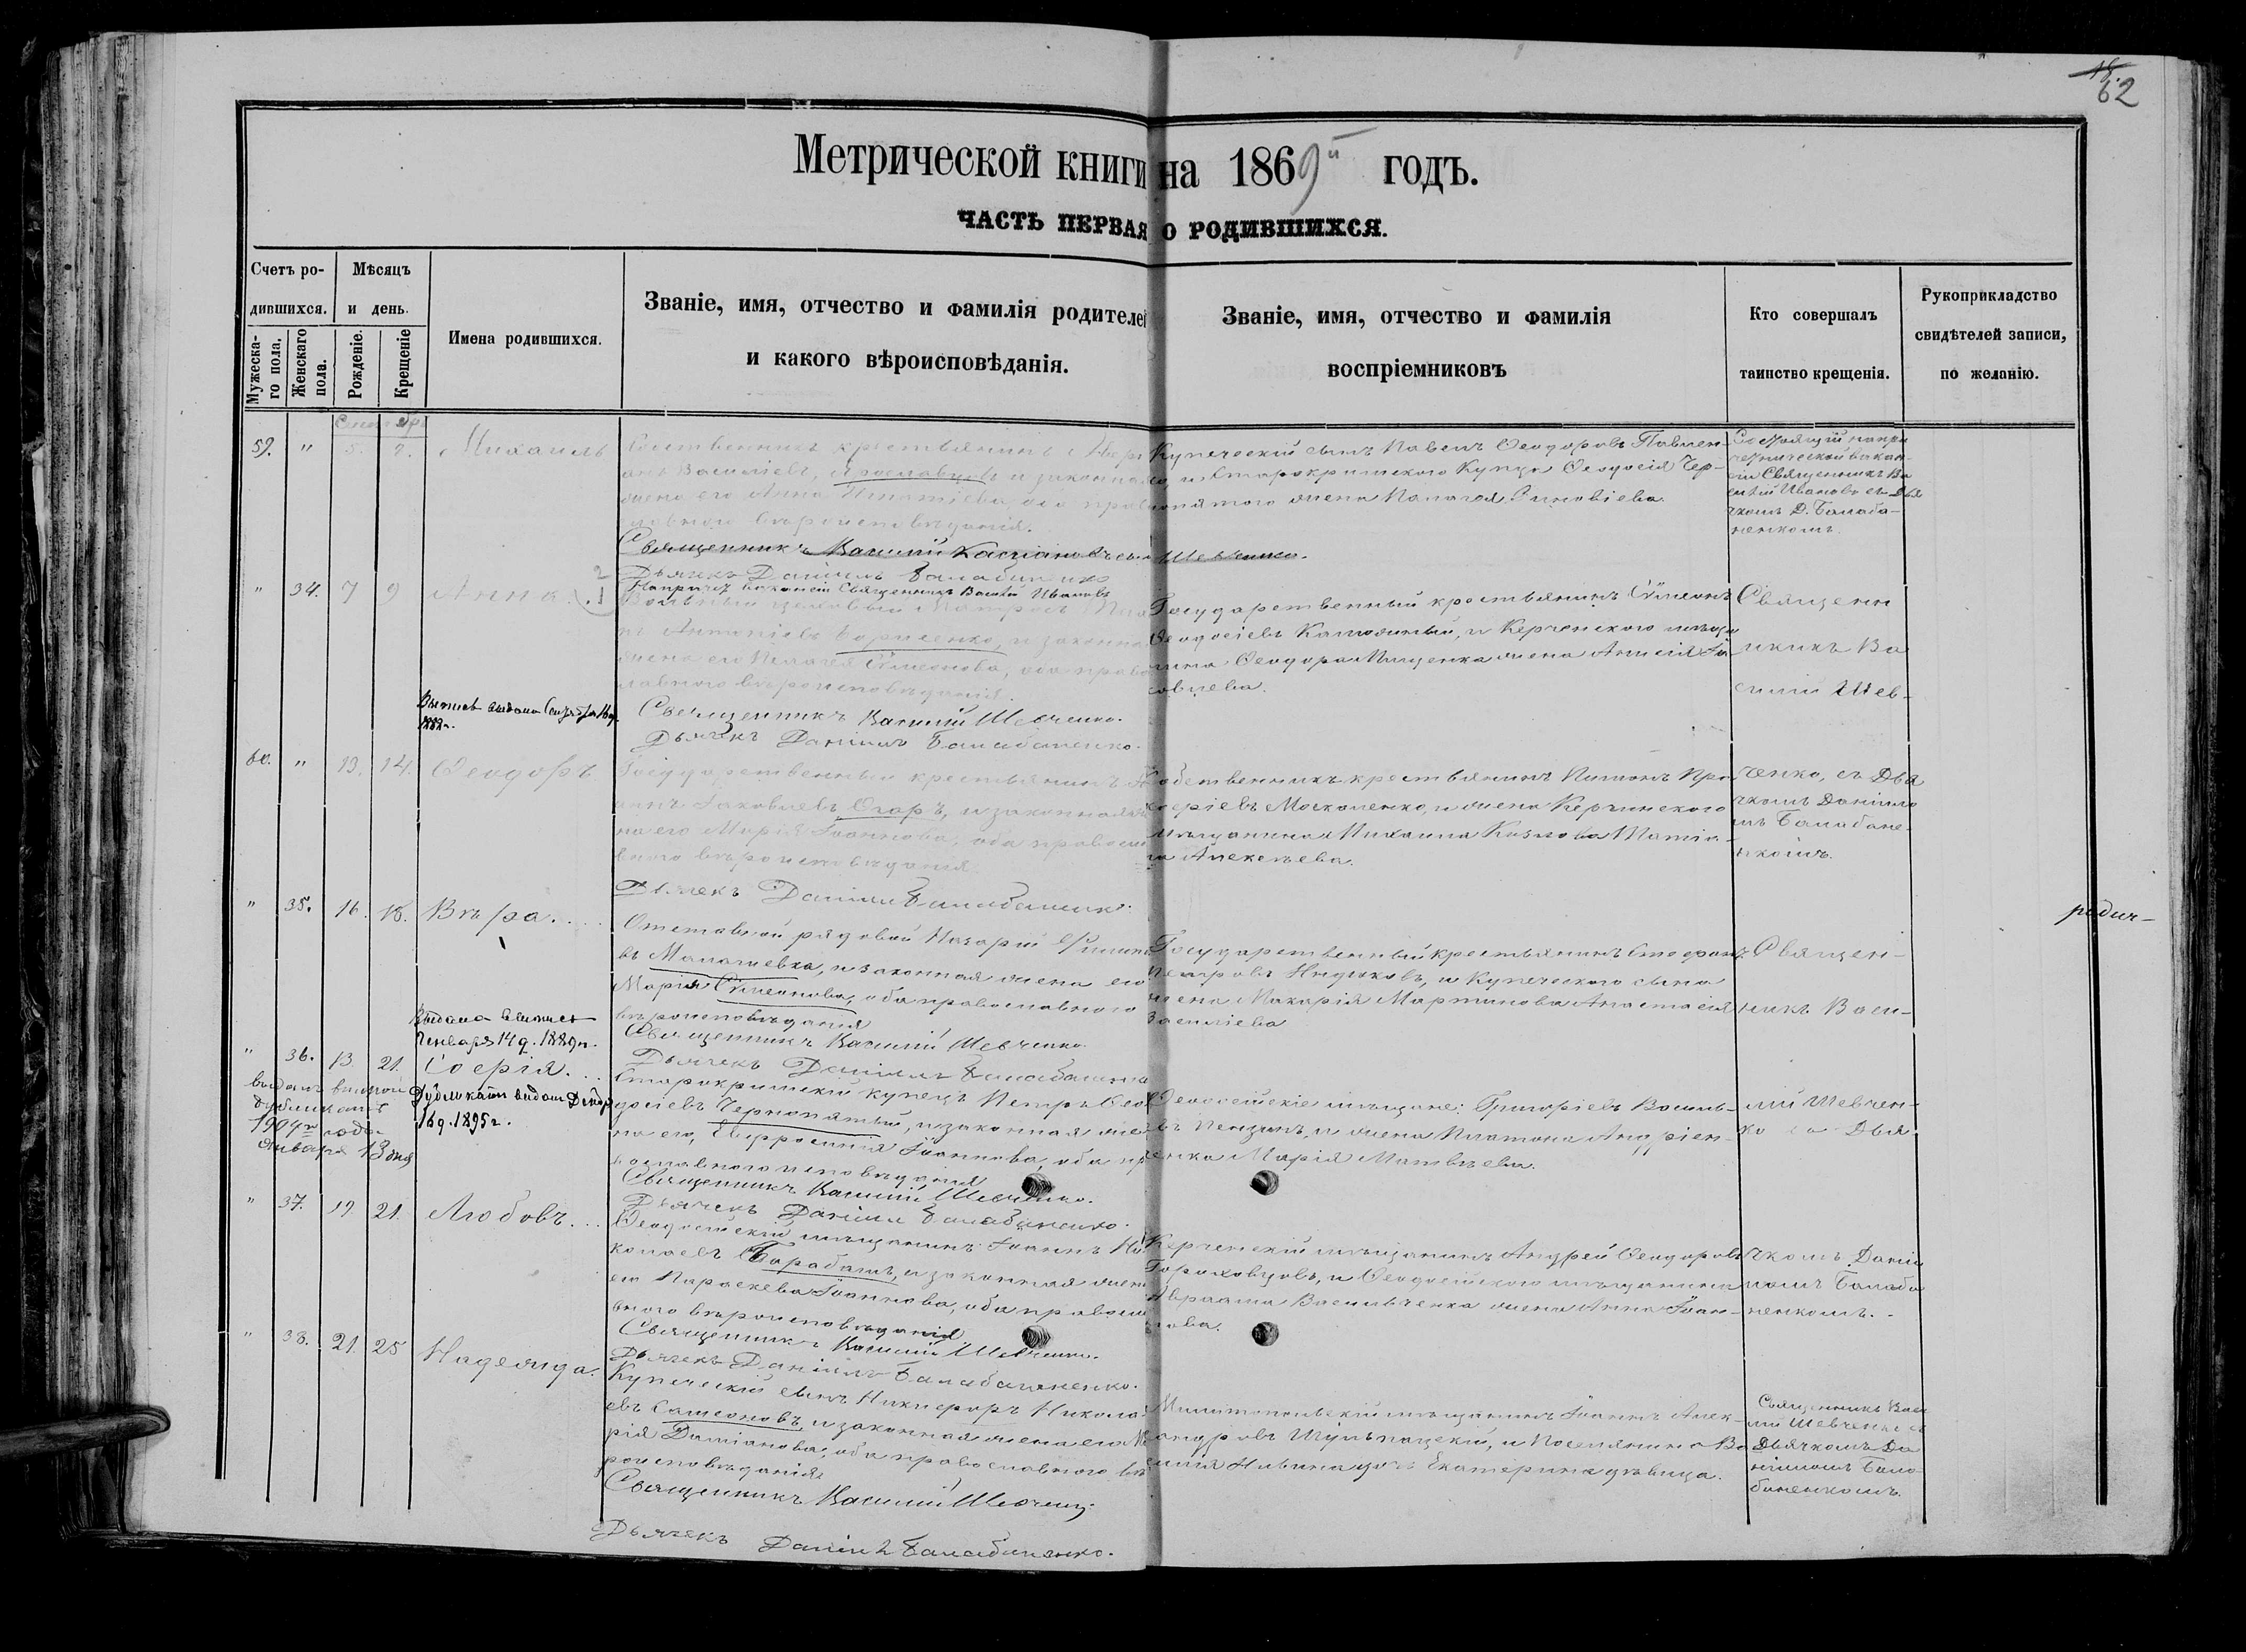 62
Метрической книги на 1869й годъ.
ЧАСТЬ ПЕРВАЯ О РОДИВШИХСЯ.
Счетъ ро-
дившихся.
Мужеска-
го пола.
Женскаго
пола.
Мѣсяцъ
и день.
Рожденіе.
Крещеніе
Имена родившихся.
Званіе, имя, отчество и фамилія родителей
и какого вѣроисповѣданія.
Званіе, имя, отчество и фамилія
воспріемниковъ
Кто совершалъ
таинство крещенія.
Рукоприкладство
свидѣтелей записи,
по желанію.
59. " 5. 7. Михаилъ
Собственникъ крестьянинъ
Василіевъ, Ярославцевъ и законная
жена его Анна Игнатіева, оба право
славного вѣроисповѣданія.
Священникъ Василий Касіановъ сынъ Шевченко.
Дьячекъ Даніилъ Балабаненко
Священникъ Василій Ивановъ
Купеческій сынъ Павелъ Ѳеодоровъ Павлен-
ко, и Старокримского Купца Ѳеодосія Чер-
нопятого жена Палагея Зиновіева.
Состоящій на при
чтнической вакан-
сіи Священникъ Ва
силій Ивановъ съ Дья
чкомъ Д. Балаба-
ненкомъ.
" 34. 7 9 Анна.
Матросъ
Антоніевъ Борисенко, и законная
жена его Пелагея Сѵмеонова, оба право
славного вѣроисповѣданія.
Священникъ Василий Шевченко.
Дьячекъ Даніилъ Балабаненко.
Государственный крестьянинъ Сѵмеонъ
Ѳеодосіевъ Калюжный, и Керченского мѣща
нина Ѳеодора Пищенка жена Анисія Іа-
ковлева.
Священ
никъ Ва
силій Шев-
60. " 13. 14. Ѳеодоръ
Государственный крестьянинъ
Іаковлевъ Огарь, и законная же
на его Марія Іоаннова, оба правосла
вного вѣроисповѣданія
Дьячекъ Даніилъ Балабаненко.
Собственникъ крестьянинъ Пименъ Про
коріевъ Москаленко, и жена Керчинского
мѣщанина Михаила Козлова Татіа-
на Алексѣева.
ченко, съ Дья
чкомъ Даніило
мъ Балабане-
нкомъ.
" 35. 16. 18. Вѣра.
Отставной рядовой Назарій Филипо
въ Малашевка, и законная жена его
Марія Сѵмеонова, оба православного
вѣроисповѣданія
Священникъ Василий Шевченко.
Дьячекъ Даніилъ Балабаненко
Государственный крестьянинъ Стефанъ
Петровъ Индюковъ, и Купеческого сына
жена Макарія Мартинова Анастасія
Василіева
Священ-
никъ Васи-
" 36. 13. 21. Софія.
Дубликатъ выданъ Декабр
16 д. 1895 г.
выданъ второй
дубликатъ
1904 года
Января 13 дня
Старокримскій купецъ Петръ Ѳео
досіевъ Чернопятый, и законная же
на его, Евфросинія Іоаннова, оба пр
вославного исповѣданія
Священникъ Василий Шевченко.
Дьячекъ Даніилъ Балабаненко.
Ѳеодосейскіе мѣщане: Григоріевъ Василь-
въ Пензинъ, и жена Платона Андріен-
енка Марія Матвѣева.
лій Шевчен-
ко съ Дья-
" 37. 19 21. Любовь.
Ѳеодосейскій мѣщанинъ Іоаннъ Ни
колаевъ Барабашъ, и законная жена
его Параскева Іоаннова, оба правосла
вного вѣроисповѣданія.
Священникъ Василий Шевченко.
Дьячекъ Даніилъ Балабаненко.
Керченскій мѣщанинъ Андрей Ѳеодоровъ
Гороховцовъ, и Ѳеодосейского мѣщанина
Авраама Васильченка жена Анна Іоан-
нова.
чкомъ Даніи
ломъ Балаба
ненкомъ.
" 38. 21. 25 Надежда.
Купеческій сынъ Никифоръ Никола-
евъ Самсоновъ, и законная жена его Ма
рія Даміанова, оба православного вѣ
роисповѣданія
Священникъ Василий Шевченко
Дьячекъ Даніилъ Балабаненко.
Милитопольскій мѣщанинъ Іоаннъ Алек-
андровъ Шульпацкій, и Поселянина Ва
силія Ильина дочь Екатерина дѣвица.
Священникъ Васи
лій Шевченко съ
Дьячкомъ Да
ніиломъ Бала
баненкомъ.